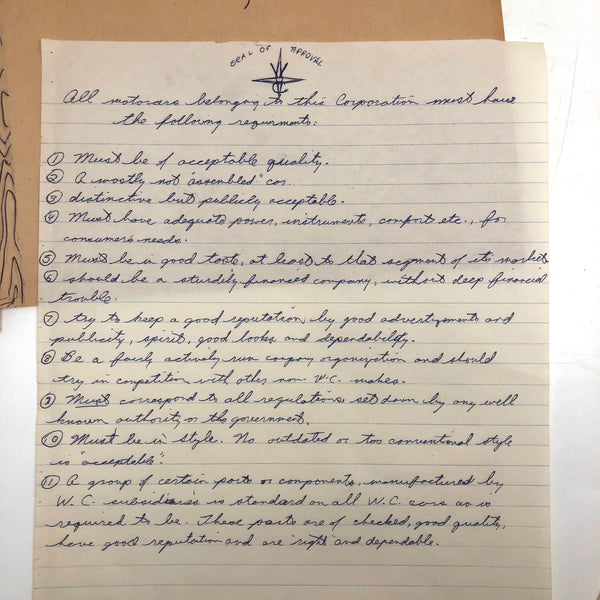 SEAL OF APROVAL
W C
All motorcars belonging to this Corporation must have
the following requirments:
① Must be of acceptable quality.
② A mostly not "assembled" car.
③ distinctive but publicly acceptable.
④ Must have adequate power, instruments, comfort etc., for
consumers needs.
⑤ Must be in good taste, at least to that segment of its market
⑥ should be a sturdily financed company, without deep financial
trouble.
⑦ try to keep a good reputation, by good advertizements and
publicity, spirit, good looks, and dependability.
⑧ Be a fairly actively run company organization and should
try in competition with other non-W.C. makes.
⑨ Must correspond to all regulations, set down by any well
known authority or the government.
⑩ Must be in style. No outdated or too conventional style
is "acceptable".
⑪ A group of certain parts or components, manufactured by
W. C. subsidiaries is standard on all W.C. cars as is
required to be. These parts are of checked, good quality,
have good reputation and are "right" and dependable.